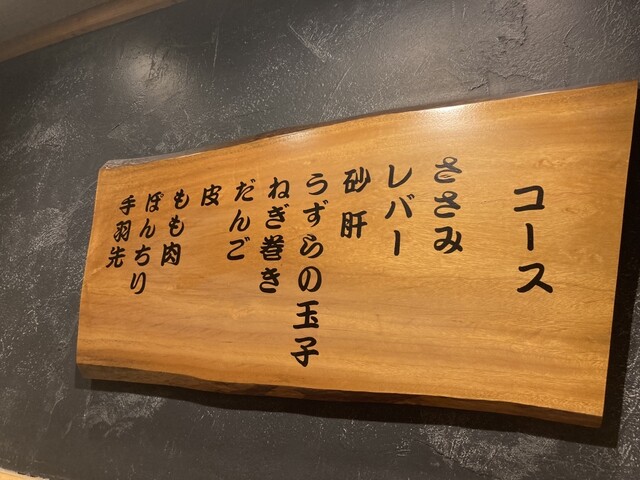 コース
ささみ
レバー
砂肝
うずらの玉子
ねぎ巻き
だんご
皮
もも肉
ぼんちり
手羽先